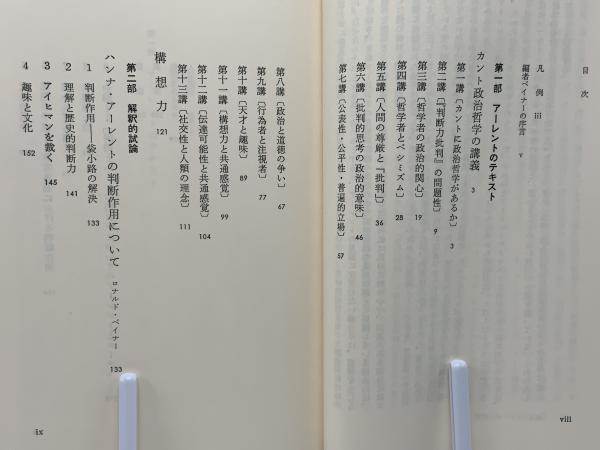 目次
凡例 iii
編者ベイナーの序言 v
第一部 アーレントのテキスト
カント政治哲学の講義 3
第一講〔カントに政治哲学があるか〕 3
第二講〔『判断力批判』の問題性〕 9
第三講〔哲学者の政治的関心〕 19
第四講〔哲学者とペシミズム〕 28
第五講〔人間の尊厳と『批判』〕 36
第六講〔批判的思考の政治的意味〕 46
第七講〔公表性・公平性・普遍的立場〕 57
viii
第八講〔政治と道徳の争い〕 67
第九講〔行為者と注視者〕 77
第十講〔天才と趣味〕 89
第十一講〔構想力と共通感覚〕 99
第十二講〔伝達可能性と共通感覚〕 104
第十三講〔社交性と人類の理念〕 111
構想力 121
第二部 解釈的試論
ハンナ・アーレントの判断作用について ロナルド・ベイナー 133
1 判断作用——袋小路の解決 133
2 理解と歴史的判断力 141
3 アイヒマンを裁く 145
4 趣味と文化 152
ix